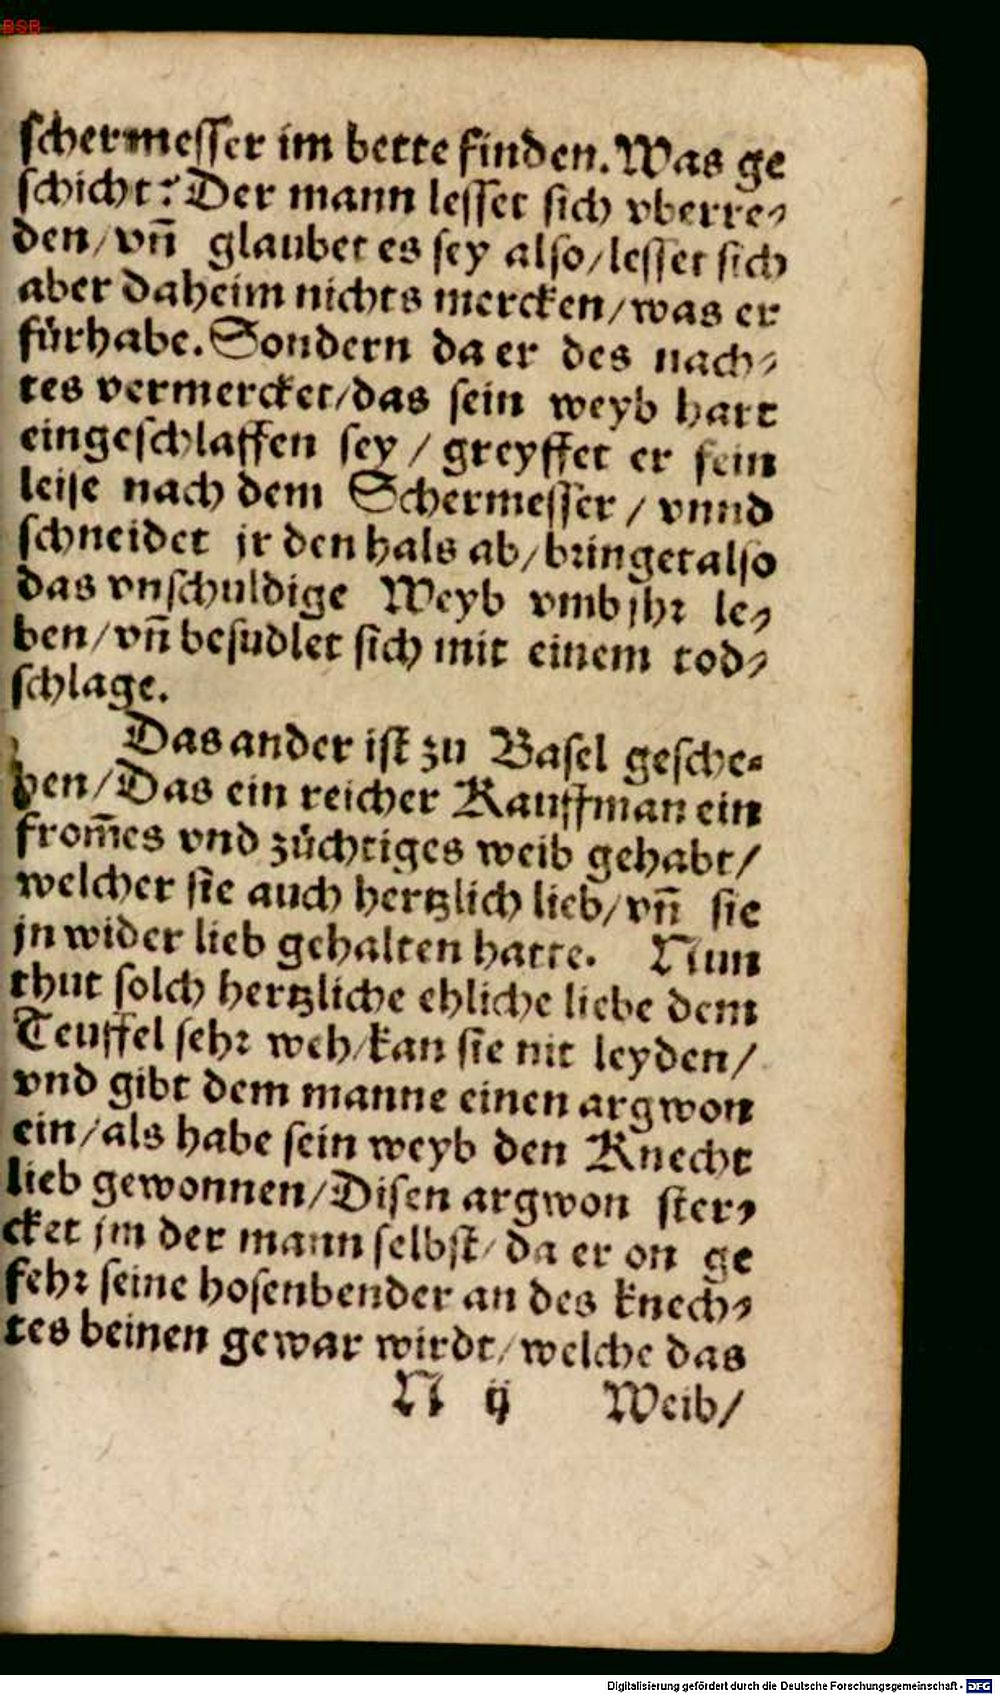 BSB
schermesser im bette finden. Was ge
schicht? Der mann lesset sich vberre⸗
den/ vn̄ glaubet es sey also/ lesset sich
aber daheim nichts mercken/ was er
fürhabe. Sondern da er des nach⸗
tes vermercket/ das sein weyb hart
eingeschlaffen sey / greyffet er fein
leise nach dem Schermesser / vnnd
schneidet jr den hals ab/ bringet also
das vnschuldige Weyb vmb jhr le⸗
ben/ vn̄ besudlet sich mit einem tod⸗
schlage.
Das ander ist zu Basel gesche⸗
hen/ Das ein reicher Kauffman ein
from̄es vnd züchtiges weib gehabt/
welcher sie auch hertzlich lieb/ vn̄ sie
jn wider lieb gehalten hatte. Nun
thut solch hertzliche ehliche liebe dem
Teuffel sehr weh/ kan sie nit leyden/
vnd gibt dem manne einen argwon
ein/ als habe sein weyb den Knecht
lieb gewonnen/ Disen argwon ster⸗
cket jm der mann selbst/ da er on ge
fehr seine hosenbender an des knech⸗
tes beinen gewar wirdt/ welche das
N ij Weib/
Digitalisierung gefördert durch die Deutsche Forschungsgemeinschaft - DFG